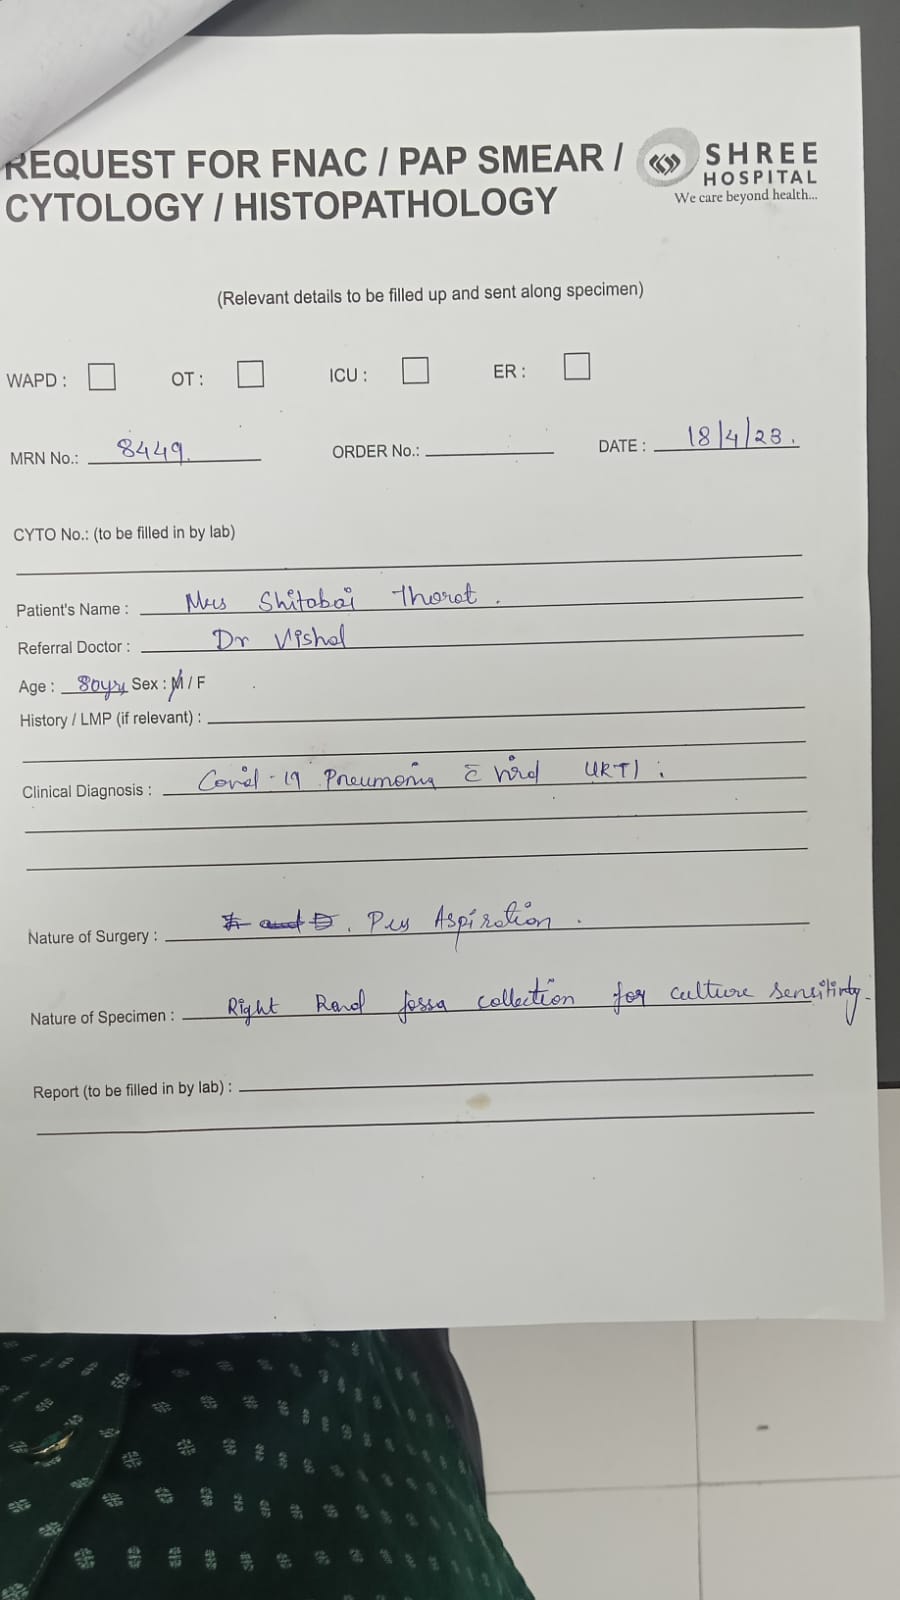 REQUEST FOR FNAC / PAP SMEAR /
CYTOLOGY / HISTOPATHOLOGY
SHREE
HOSPITAL
We care beyond health...
(Relevant details to be filled up and sent along specimen)
WAPD : OT : ICU : ER :
MRN No.: 8449. ORDER No.: DATE : 18/4/23.
CYTO No.: (to be filled in by lab)
Patient's Name : Mrs Shitabai Thorat.
Referral Doctor : Dr Vishal
Age : 80yrs Sex : M / F
History / LMP (if relevant) :
Clinical Diagnosis : Covid-19 Pneumonia c̄ URTI.
Nature of Surgery : Pus Aspiration.
Nature of Specimen : Right fossa collection for culture sensitivity.
Report (to be filled in by lab) :